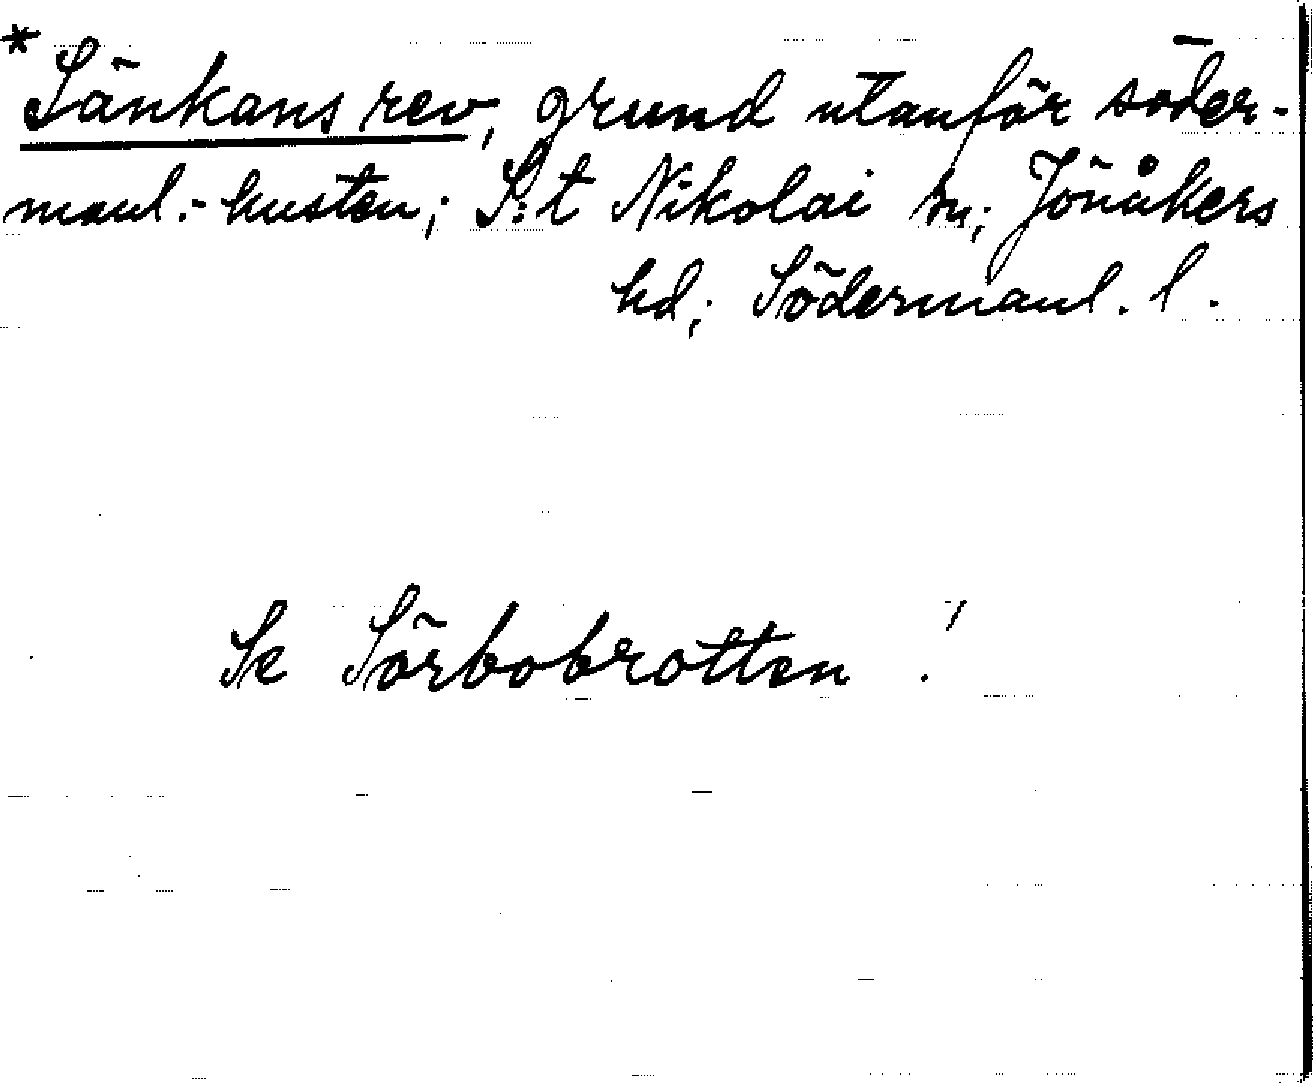 * Sänkans rev, grund utanför söder-
manl.-kusten; S:t Nikolai sn; Jönåkers
hd; Södermanl. l.
Se Sörbobrotten!